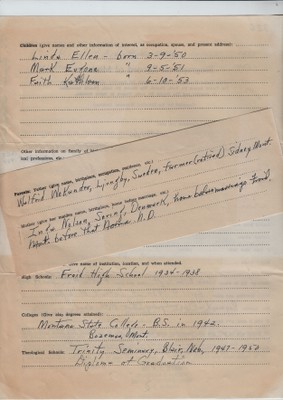 Children (give names and other information of interest, as occupation, spouse, and present address):
Linda Ellen - born 3-9-'50
Mark Eugene " 9-5-'51
Faith Kathleen " 6-10-'53
Other information on family of
ial profession, etc.
Parents: Father (give name, birthplace, occupation, residence, etc.)
Walfrid Lyngby, Sweden, farmer (retired) Sidney, Mont.
Mother (give her maiden name, birthplace, home before marriage, etc.)
Inga Nelson, Denmark, home before marriage Froid,
Mont. before that N.D.
give name of institution, location, and when attended.
High School: Froid High School 1934-1938
Colleges (Give also degrees obtained):
Montana State College - B.S. in 1942.
Bozeman, Mont.
Theological Schools: Trinity Seminary, Blair, Neb, 1947-1952
Diploma of Graduation